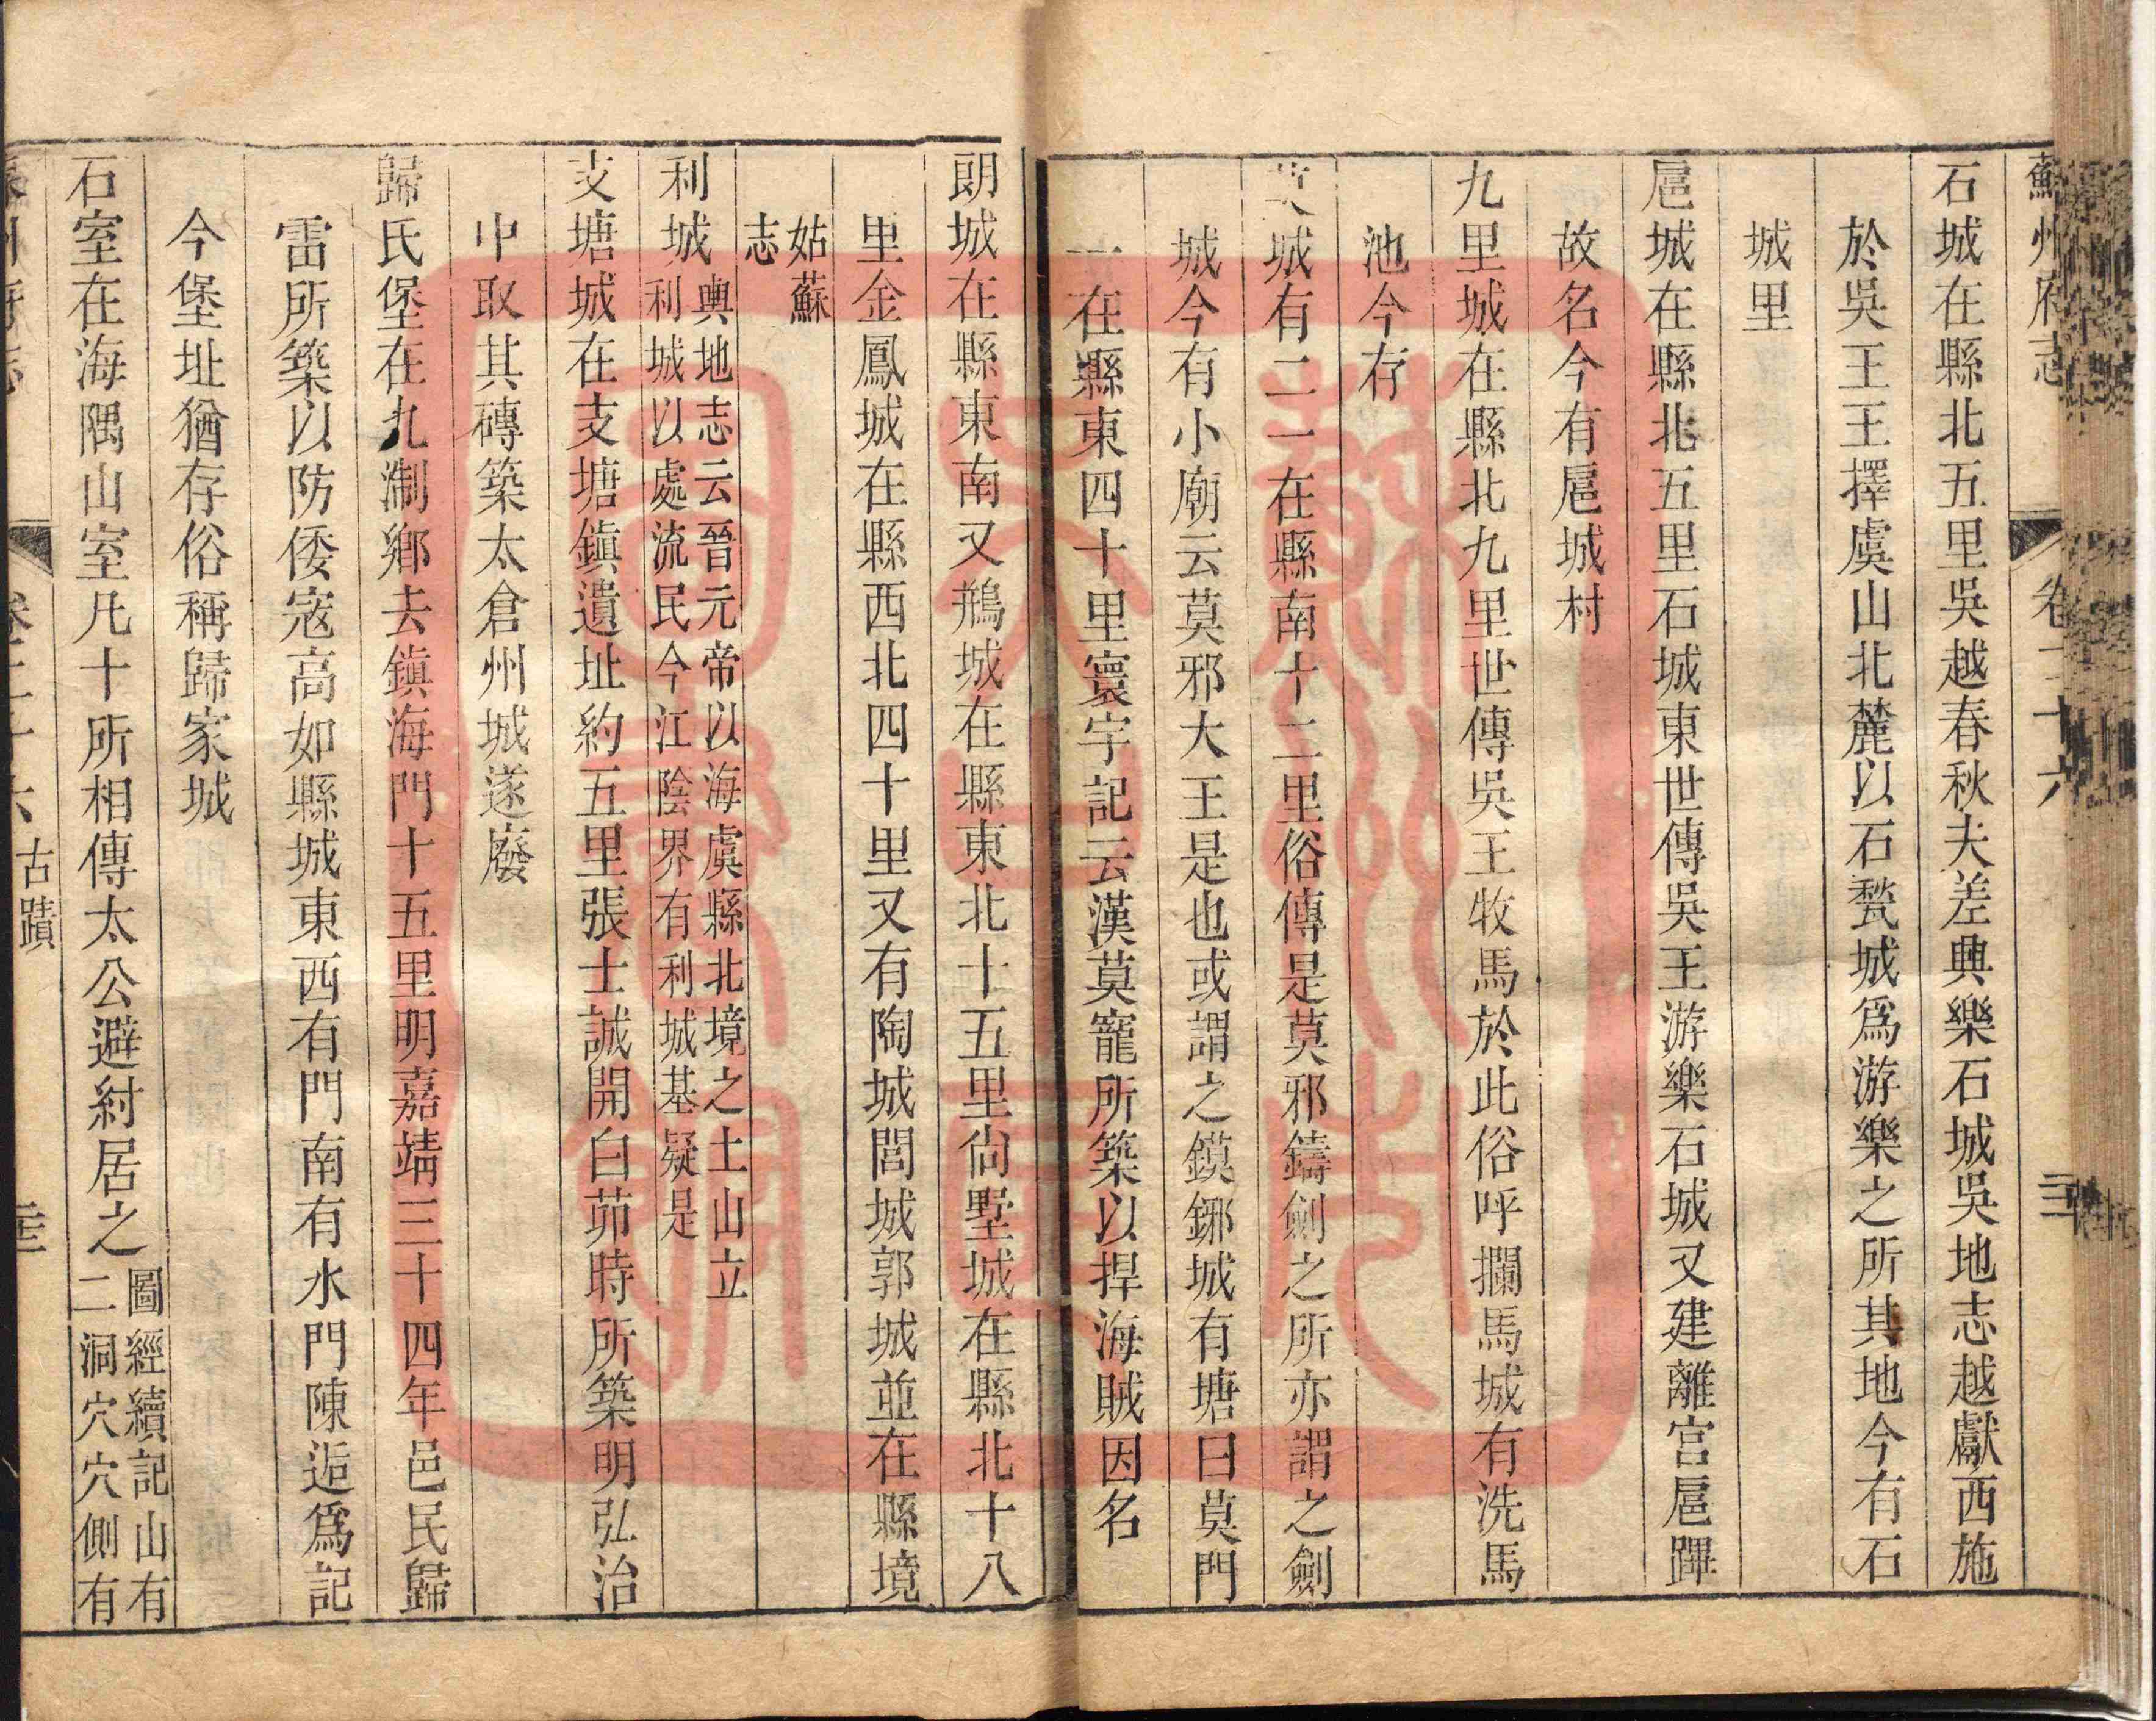 蘇州府志 卷三十六
石城在縣北五里吳越春秋夫差興樂石城吳地志越獻西施
於吳王王擇虞山北麓以石甃城爲游樂之所其地今有石
城里
扈城在縣北五里石城東世傳吳王游樂石城又建離宮扈蹕
故名今有扈城村
九里城在縣北九里世傳吳王牧馬於此俗呼攔馬城有洗馬
池今存
莫城有二一在縣南十二里俗傳是莫邪鑄劍之所亦謂之劍
城今有小廟云莫邪大王是也或謂之鏌鋣城有塘曰莫門
一在縣東四十里寰宇記云漢莫寵所築以捍海賊因名
朗城在縣東南又鴉城在縣東北十五里尙墅城在縣北十八
里金鳳城在縣西北四十里又有陶城閭城郭城並在縣境
姑蘇
志
利城輿地志云晉元帝以海虞縣北境之土山立
利城以處流民今江陰界有利城基疑是
支塘城在支塘鎭遺址約五里張士誠開白茆時所築明弘治
中取其磚築太倉州城遂廢
歸氏堡在九淛鄉去鎭海門十五里明嘉靖三十四年邑民歸
雷所築以防倭寇高如縣城東西有門南有水門陳逅爲記
今堡址猶存俗稱歸家城
石室在海隅山室凡十所相傳太公避紂居之圖經續記山有
二洞穴穴側有
古蹟